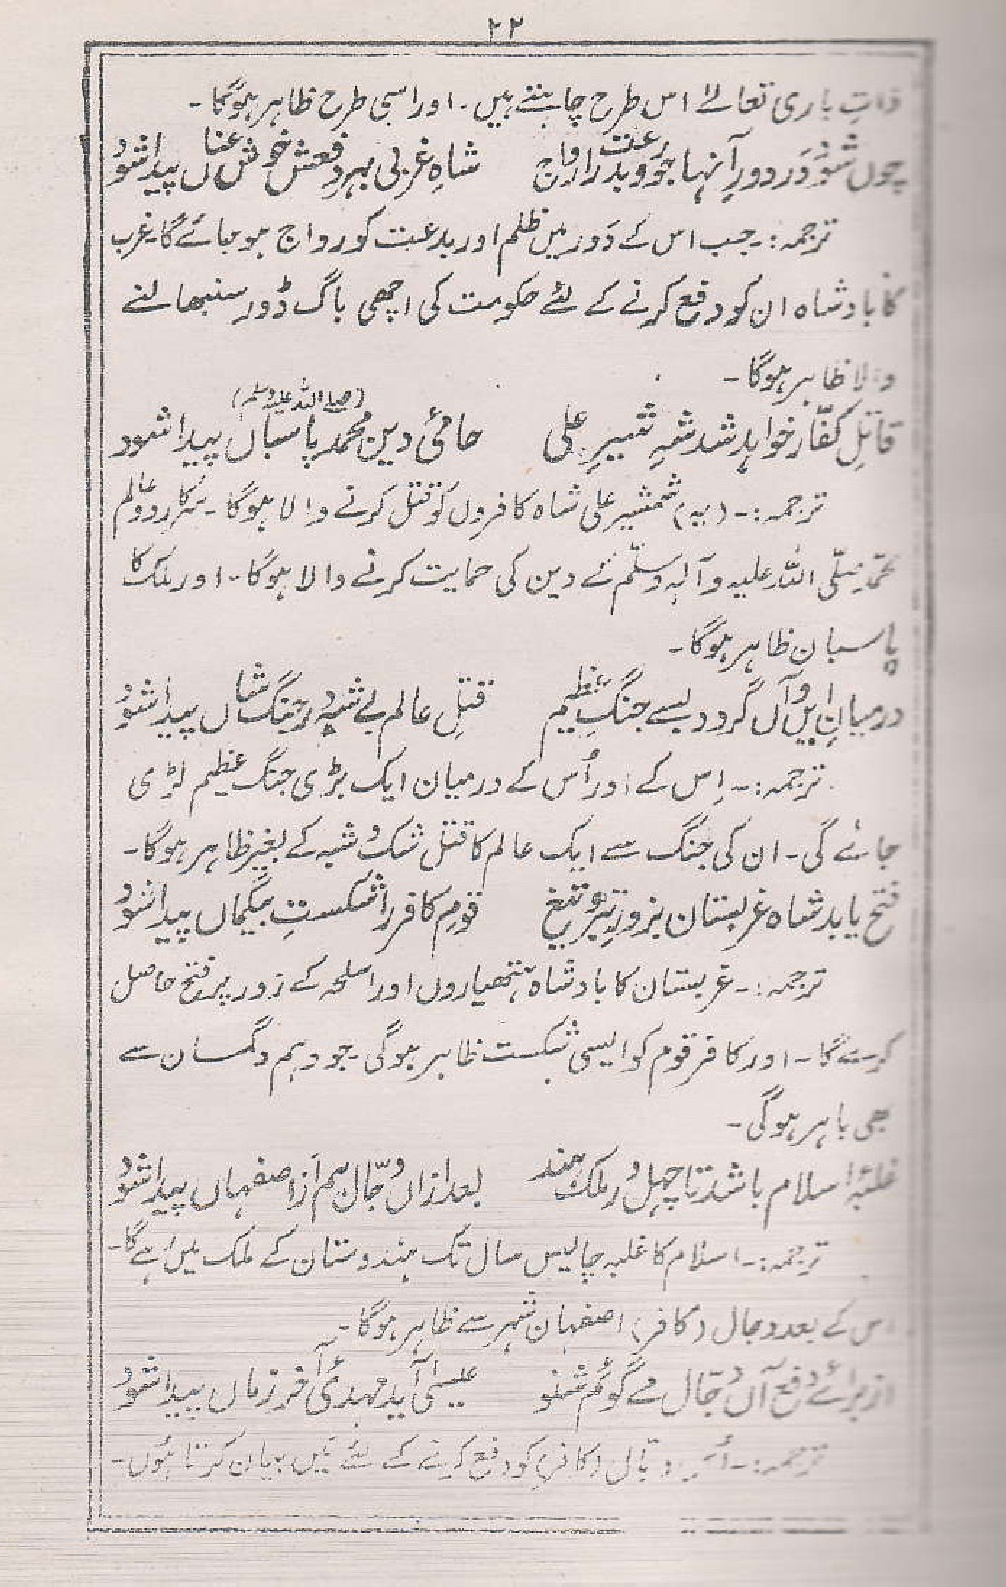 ۲۲
ذاتِ باری تعالےٰ اس طرح چاہتے ہیں۔ اور اسی طرح ظاہر ہوگا۔
چوں شود در دورِ آنہا جور و بدعت را رواج شاہِ غربی بہرِ دفعش خوش عناں پیدا شود
ترجمہ:۔ جب اس کے دَور میں ظلم اور بدعت کو رواج ہو جائے گا۔ غرب
کا بادشاہ ان کو دفع کرنے کے لئے حکومت کی اچھی باگ ڈور سنبھالنے
والا ظاہر ہوگا۔
(صلے اللہ علیہ وسلم)
قاتلِ کفّار خواہد شد شہِ شمشیرِ علی حامیٔ دینِ محمد پاسباں پیدا شود
ترجمہ:۔ (یہ) شمشیر علی شاہ کافروں کو قتل کرنے والا ہوگا۔ سرکار دو عالم
محمد صلّی اللہ علیہ وآلہٖ وسلّم کے دین کی حمایت کرنے والا ہوگا۔ اور ملک کا
پاسبان ظاہر ہوگا۔
درمیانِ این و آں گردد بسے جنگِ عظیم قتلِ عالم بے شبہ در جنگِ شاں پیدا شود
ترجمہ:۔ اِس کے اور اُس کے درمیان ایک بڑی جنگ عظیم لڑی
جائے گی۔ ان کی جنگ سے ایک عالم کا قتل شک و شبہ کے بغیر ظاہر ہوگا۔
فتح یابد شاہ غربستان بزورِ تیر و تیغ قومِ کافر را شکستِ بیگماں پیدا شود
ترجمہ:۔ غربستان کا بادشاہ ہتھیاروں اور اسلحہ کے زور پر فتح حاصل
کرے گا۔ اور کافر قوم کو ایسی شکست ظاہر ہوگی۔ جو وہم و گمان سے
بھی باہر ہوگی۔
غلبۂ اسلام باشد تا چہل در ملک ہند بعد ازاں دجّال ہم از اصفہاں پیدا شود
ترجمہ:۔ اسلام کا غلبہ چالیس سال تک ہندوستان کے ملک میں رہے گا۔
اس کے بعد دجال (کافر) اصفہان شہر سے ظاہر ہوگا۔
از برائے دفع آں دجّال مے گوئم شنو عیسیٰ آید مہدیٔ آخر زماں پیدا شود
ترجمہ:۔ اُس دجّال (کافر) کو دفع کرنے کے لئے میں بیان کرتا ہوں۔